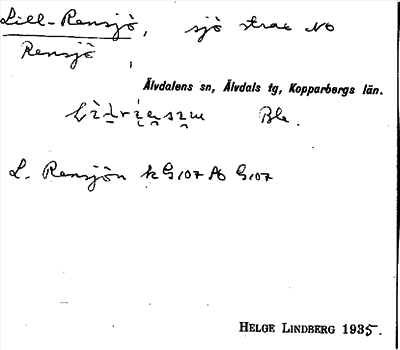 Lill-Rensjö, sjö strax NO
Rensjö,
Älvdalens sn, Älvdals tg, Kopparbergs län.
L. Rensjön k G107 Ab G107
HELGE LINDBERG 1935.